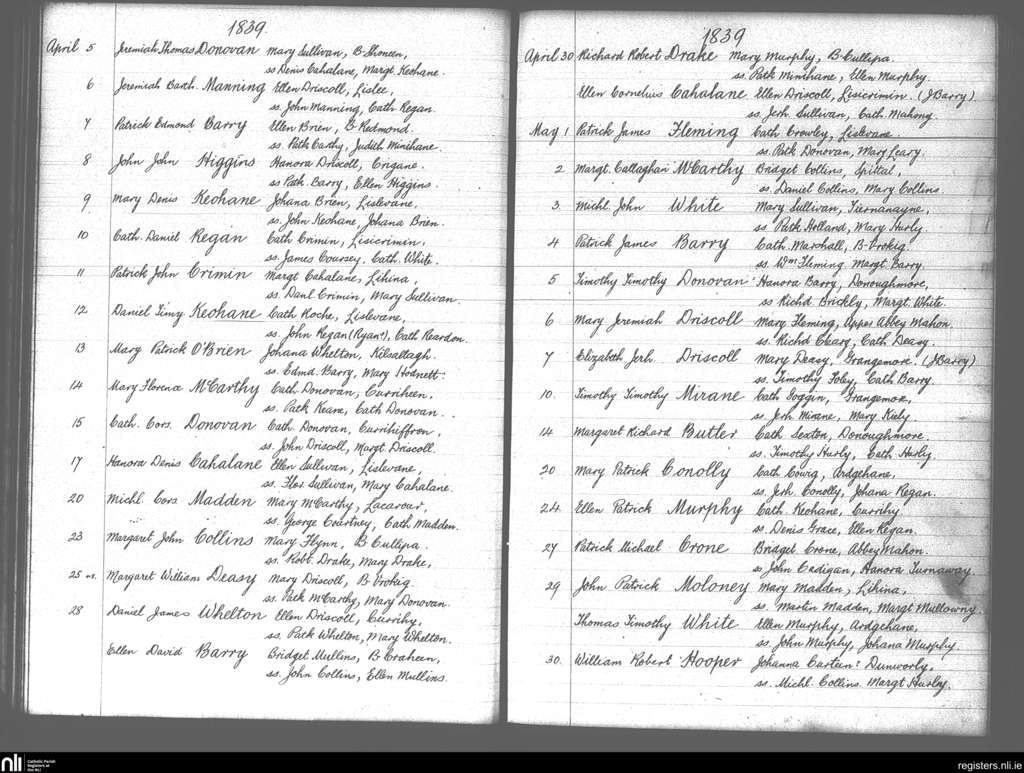 1839.
April 5 Jeremiah Thomas Donovan Mary Sullivan, B-Shoneen,
ss Denis Cahalane, Margt. Keohane.
6 Jeremiah Barth. Manning Ellen Driscoll, Lislee,
ss. John Manning, Cath Regan.
7 Patrick Edmond Barry Ellen Brien, B-Redmond.
ss. Patk Carthy, Judith Minihane.
8 John John Higgins Hanora Driscoll, Crigane.
ss Patk Barry, Ellen Higgins.
9 Mary Denis Keohane Johana Brien, Lislevane,
ss. John Keohane, Johana Brien.
10 Cath. Daniel Regan Cath Crimin, Lisicrimin.
ss. James Coursey. Cath. White.
11 Patrick John Crimin Margt Cahalane, Lihina,
ss. Danl Crimin, Mary Sullivan.
12 Daniel Timy Keohane Cath Roche, Lislevane,
ss. John Regan (Ryan?), Cath Reardon.
13 Mary Patrick O'Brien Johana Whelton, Kilsallagh.
ss. Edmd. Barry, Mary Hodnett.
14 Mary Florence McCarthy Cath Donovan, Curriheen,
ss. Patk Keane, Cath Donovan.
15 Cath. Cors. Donovan Cath Donovan, Currihiffron,
ss. John Driscoll, Margt Driscoll.
17 Hanora Denis Cahalane Ellen Sullivan, Lislevane,
ss. Flor. Sullivan, Mary Cahalane.
20 Michl. Cors Madden Mary McCarthy, Lacarour,
ss. George Courtney, Cath Madden.
23 Margaret John Collins Mary Flynn, B Cullipa.
ss. Robt. Drake, Mary Drake,
25 Margaret William Deasy Mary Driscoll, B-Vrokig.
ss. Patk McCarthy, Mary Donovan.
28 Daniel James Whelton Ellen Driscoll, Currihy,
ss. Patk Whelton, Mary Whelton.
Ellen David Barry Bridget Mullins, B-Craheen,
ss. John Collins, Ellen Mullins.
1839
April 30 Richard Robert Drake Mary Murphy, B-Cullipa.
ss. Patk Minihane, Ellen Murphy.
Ellen Cornelius Cahalane Ellen Driscoll, Lisicrimin. (J Barry)
ss. Jerh Sullivan, Cath Mahony.
May 1 Patrick James Fleming Cath Crowley, Lislevane.
ss. Patk Donovan, Mary Leary.
2 Margt. Callaghan McCarthy Bridget Collins, Spittal,
ss. Daniel Collins, Mary Collins.
3. Michl John White Mary Sullivan, Tiernanayne,
ss Patk Holland, Mary Hurly.
4 Patrick James Barry Cath. Marshall, B-Vrokig.
ss. Wm Fleming. Margt Barry.
5 Timothy Timothy Donovan Hanora Barry, Donoughmore,
ss Richd Brickly, Margt. White.
6 Mary Jeremiah Driscoll Mary Fleming, Upper Abbey Mahon.
ss. Richd Cleary, Cath Deasy.
7 Elizabeth Jerh. Driscoll Mary Deasy, Grangemore. (J Barry)
ss. Timothy Foley, Cath Barry.
10. Timothy Timothy Mirane Cath Goggin, Grangemore,
ss. Jerh Mirane, Mary Kiely.
14 Margaret Richard Butler Cath Sexton, Donoughmore.
ss. Timothy Hurly, Cath Hurly.
20 Mary Patrick Conolly Cath Cowig, Ardgehane,
ss. Jerh Conolly, Johana Regan.
24. Ellen Patrick Murphy Cath. Keohane, Currihy.
ss. Denis Grace, Ellen Regan.
27 Patrick Michael Crone Bridget Crone, Abbey Mahon.
ss John Cadigan, Hanora Turnaway.
29 John Patrick Moloney Mary Madden, Lihina,
ss. Martin Madden, Margt Mullowny.
Thomas Timothy White Ellen Murphy, Ardgehane,
ss. John Murphy, Johana Murphy.
30. William Robert Hooper Johanna Carteen? Dunworly,
ss. Michl. Collins. Margt Hurly.
nli Catholic Parish Registers at the NLI
registers.nli.ie